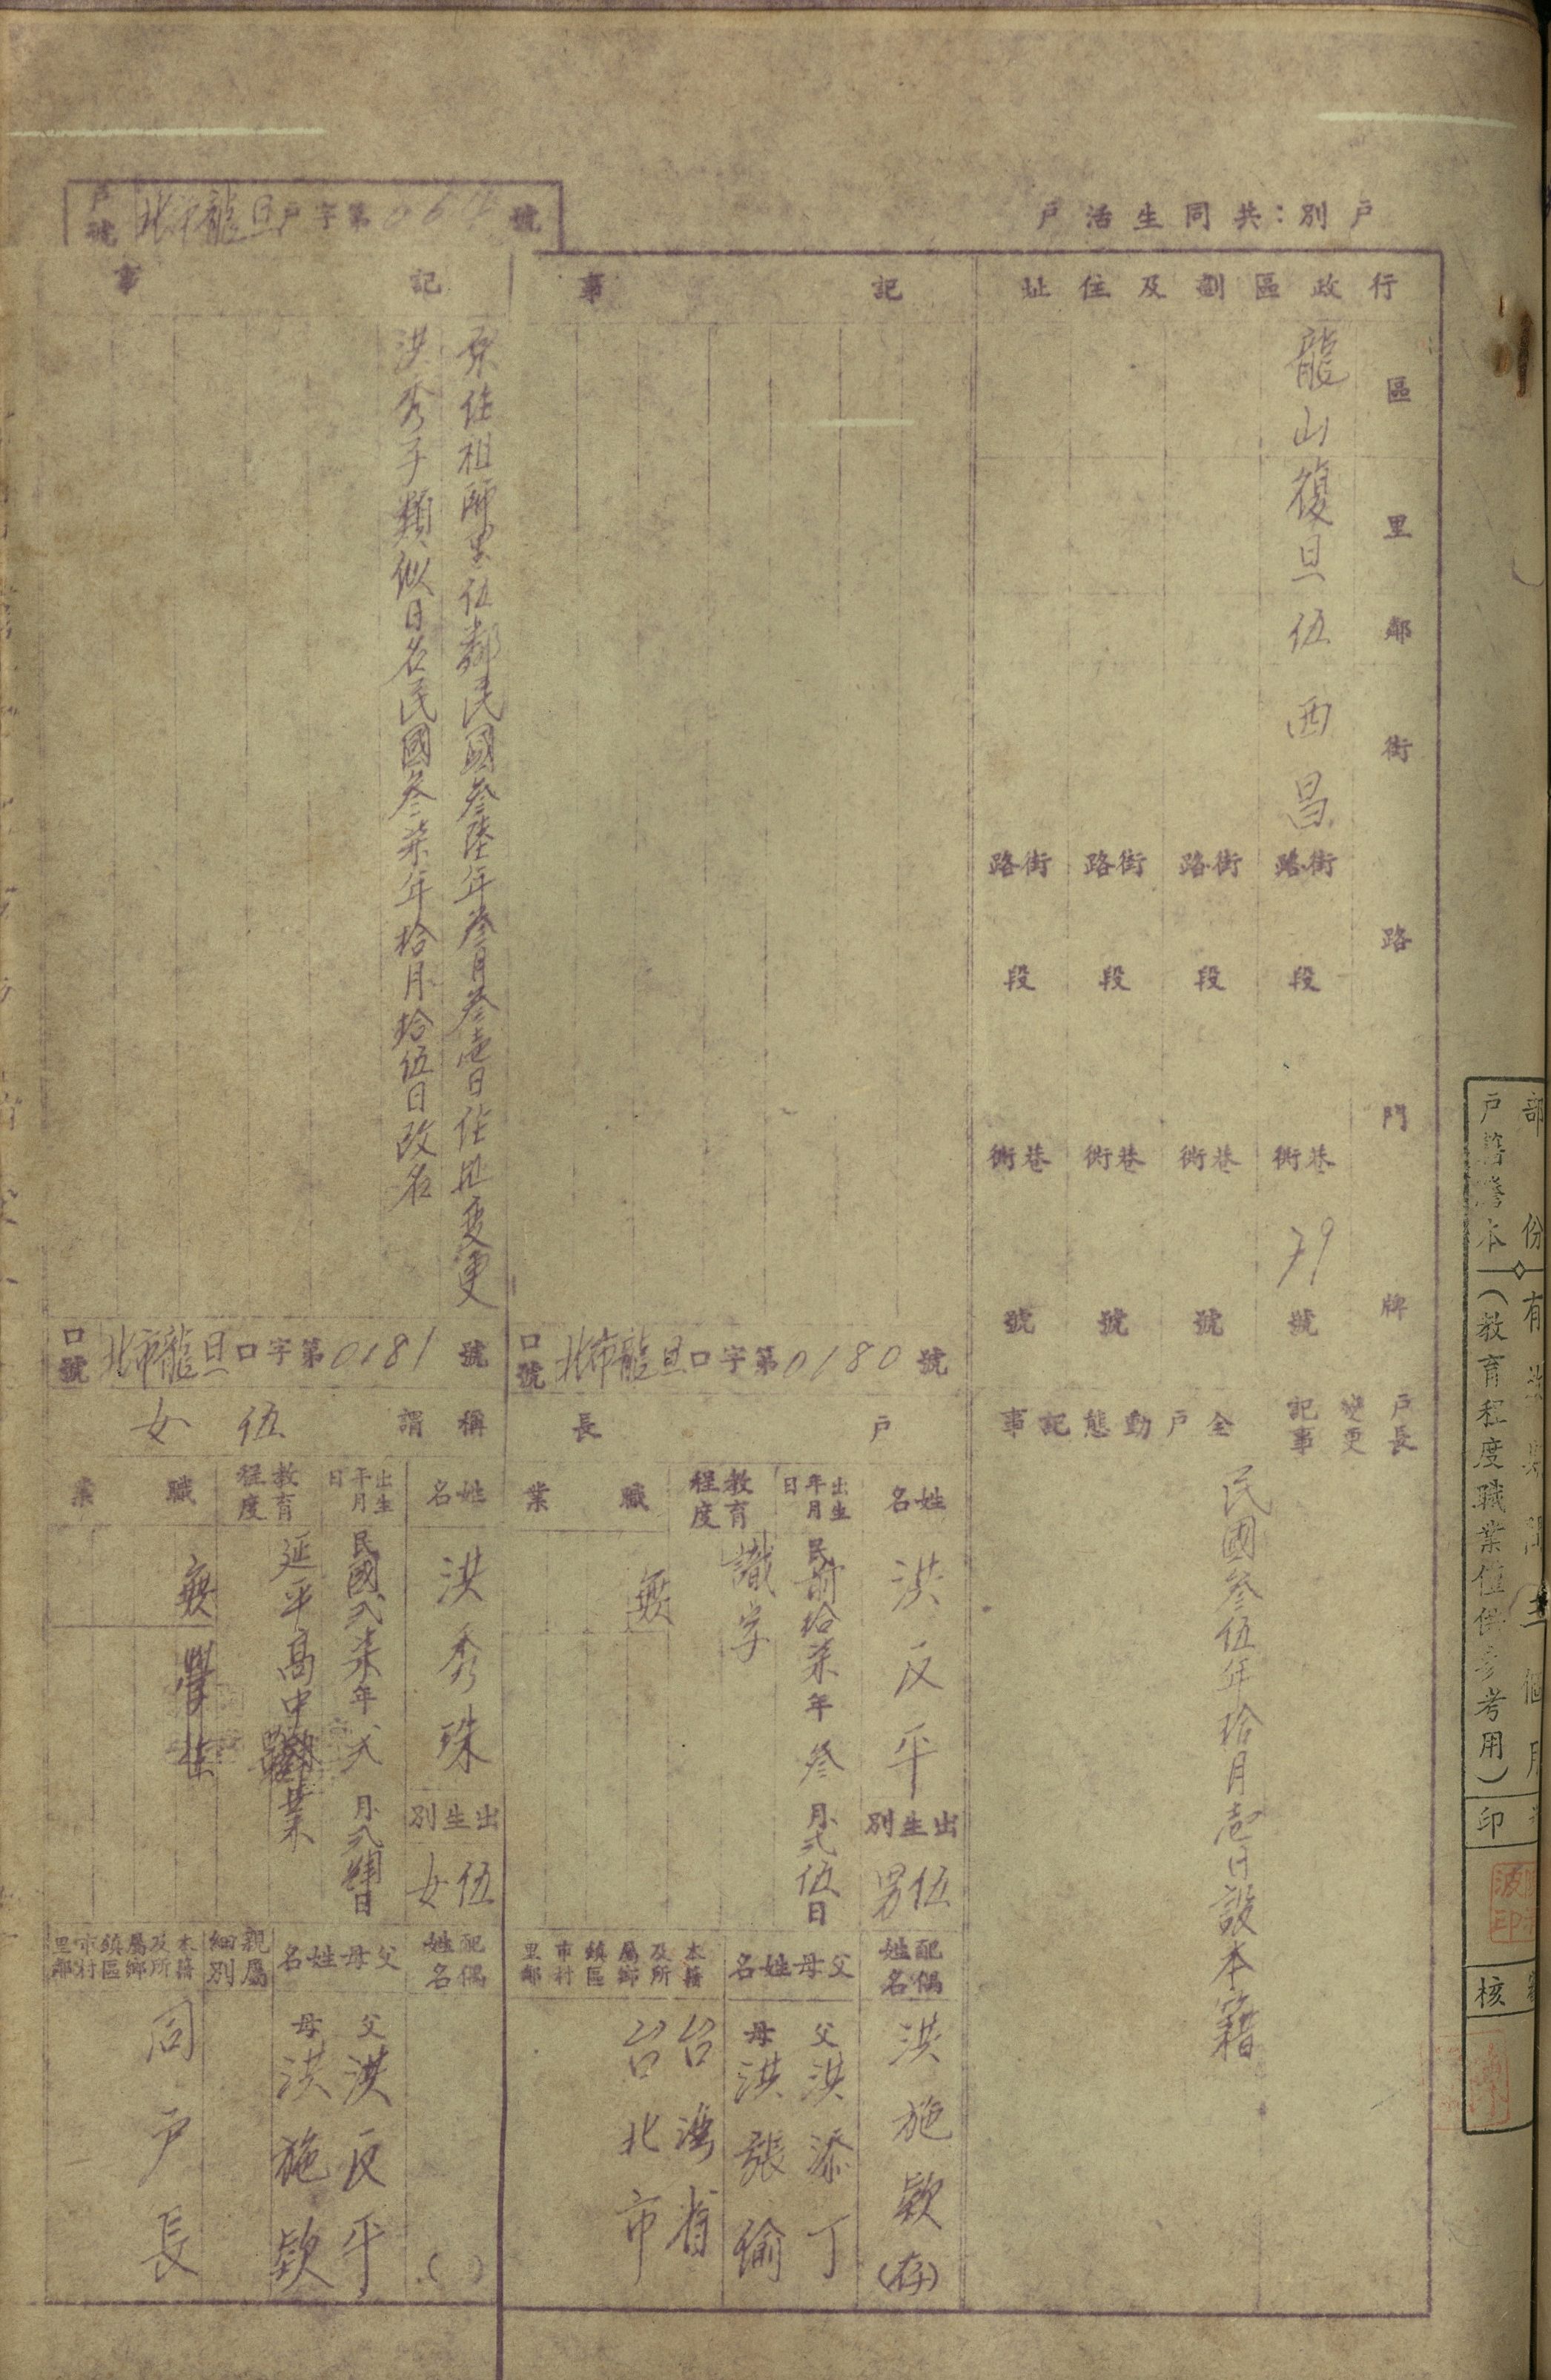 戶別：共同生活戶
戶號 北市龍旦戶字第 號
行政區劃及住址
區 里 鄰 街 路 門 牌
龍山 復旦 伍 西昌 街路 段 巷衖 79 號
街路 段 巷衖 號
街路 段 巷衖 號
街路 段 巷衖 號
戶長變更記事
全戶動態記事
民國叁伍年拾月壹日設本籍
記事
口號 北市龍旦口字第0180號
戶長
姓名 洪反平
出生別 伍男
配偶姓名 洪施欵(存)
出生年月日 民前拾柒年叁月弍伍日
父母姓名 父 洪添丁
母 洪張偷
教育程度 識字
職業 無
本籍及所屬鄉鎮區市村里鄰
台灣省
台北市
記事
原住祖師里伍鄰民國叁陸年叁月叁壹日住址變更
洪秀子類似日名民國叁柒年拾月拾伍日改名
口號 北市龍旦口字第0181號
稱謂 伍女
姓名 洪秀珠
出生別 伍女
配偶姓名 ( )
出生年月日 民國弍柒年 月 日
父母姓名 父 洪反平
母 洪施欵
教育程度 延平高中 業
親屬細別
職業 無
本籍及所屬鄉鎮區市村里鄰
同戶長
戶籍謄本（教育程度職業位供參考用）
印
核